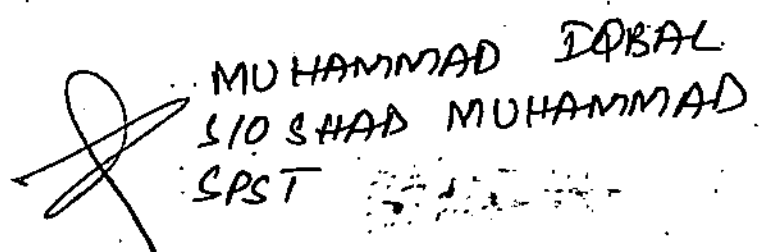 MUHAMMAD IQBAL
S/O SHAD MUHAMMAD
SPST